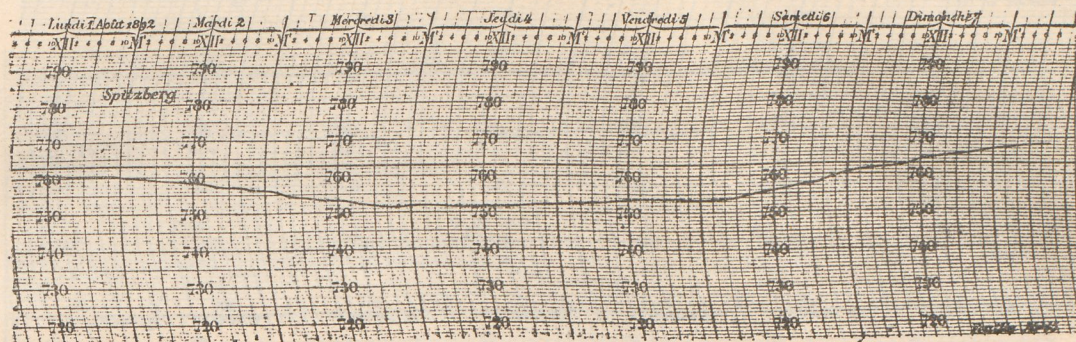 Lundi 1 Août 1892 Mardi 2 Mercredi 3 Jeudi 4 Vendredi 5 Samedi 6 Dimanche 7
XII M XII M XII M XII M XII M XII M XII M
790 790 790 790 790 790 790
Spitzberg
780 780 780 780 780 780 780
770 770 770 770 770 770
760 760 760 760 760 760 760
750 750 750 750 750 750 750
740 740 740 740 740 740 740
730 730 730 730 730 730 730
720 720 720 720 720 720 720